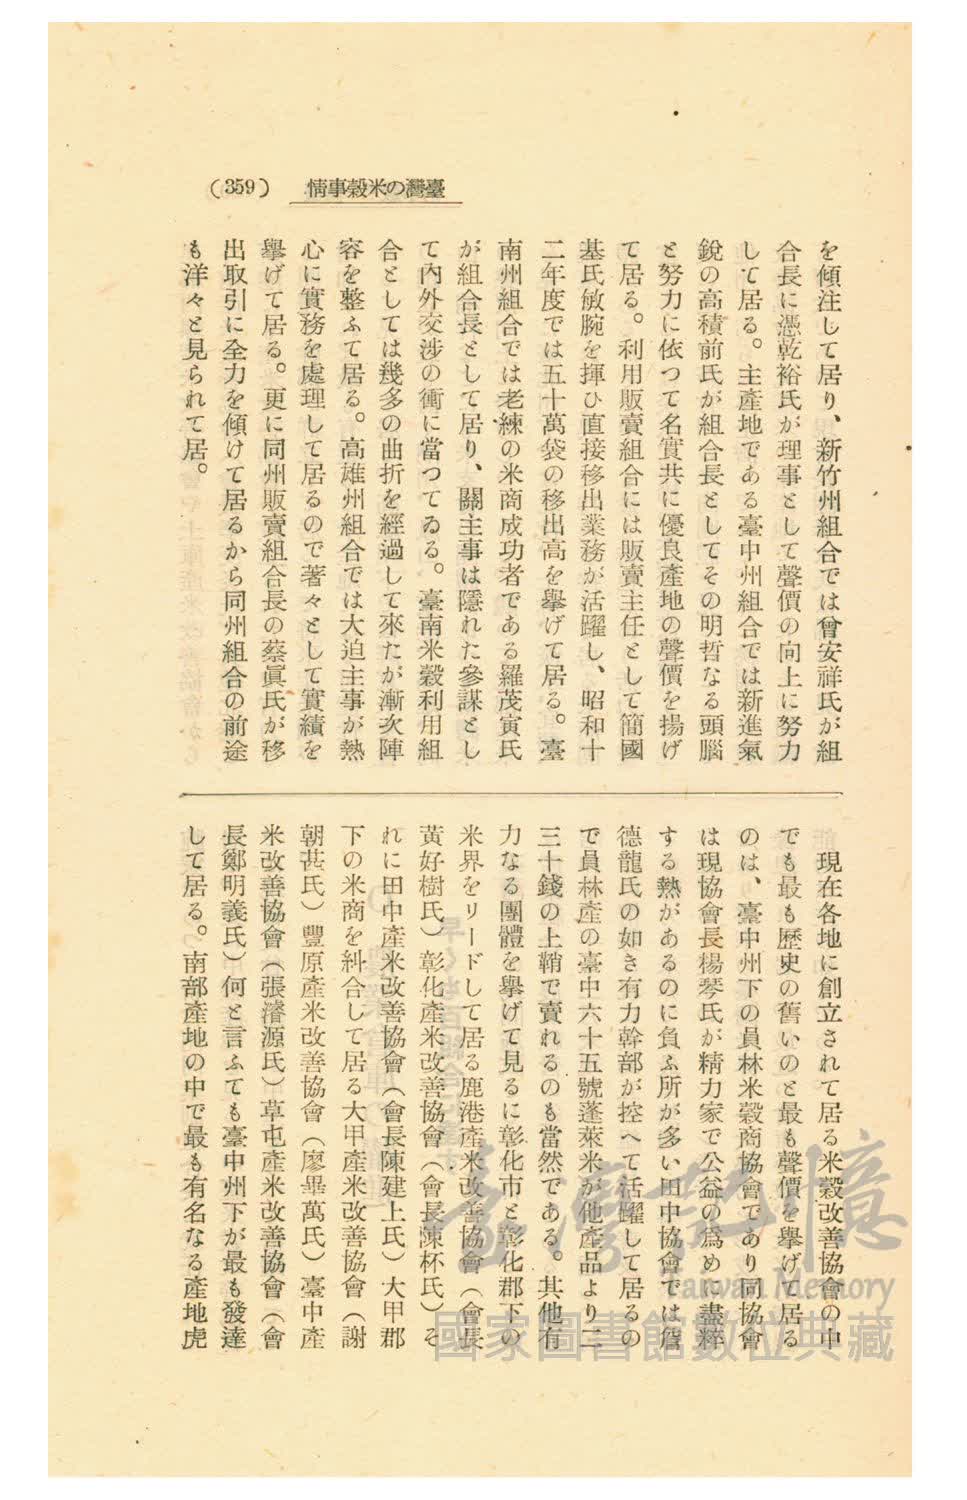 (359) 情事穀米の灣臺
を傾注して居り、新竹州組合では曾安祥氏が組
合長に憑乾裕氏が理事として聲價の向上に努力
して居る。主產地である臺中州組合では新進氣
銳の高積前氏が組合長としてその明哲なる頭腦
と努力に依つて名實共に優良產地の聲價を揚げ
て居る。利用販賣組合には販賣主任として簡國
基氏敏腕を揮ひ直接移出業務が活躍し、昭和十
二年度では五十萬袋の移出高を擧げて居る。臺
南州組合では老練の米商成功者である羅茂寅氏
が組合長として居り、關主事は隱れた參謀とし
て內外交涉の衝に當つてゐる。臺南米穀利用組
合としては幾多の曲折を經過して來たが漸次陣
容を整ふて居る。高雄州組合では大迫主事が熱
心に實務を處理して居るので著々として實績を
擧げて居る。更に同州販賣組合長の蔡眞氏が移
出取引に全力を傾けて居るから同州組合の前途
も洋々と見られて居。
現在各地に創立されて居る米穀改善協會の中
でも最も歷史の舊いのと最も聲價を擧げて居る
のは、臺中州下の員林米穀商協會であり同協會
は現協會長楊琴氏が精力家で公益の爲めに盡粹
する熱があるのに負ふ所が多い田中協會では詹
德龍氏の如き有力幹部が控へて活躍して居るの
で員林產の臺中六十五號蓬萊米が他產品より二
三十錢の上鞘で賣れるのも當然である。其他有
力なる團體を擧げて見るに彰化市と彰化郡下の
米界をリードして居る鹿港產米改善協會（會長
黃好樹氏）彰化產米改善協會（會長陳杯氏）そ
れに田中產米改善協會（會長陳建上氏）大甲郡
下の米商を糾合して居る大甲產米改善協會（謝
朝其氏）豐原產米改善協會（廖畢萬氏）臺中產
米改善協會（張濬源氏）草屯產米改善協會（會
長鄭明義氏）何と言ふても臺中州下が最も發達
して居る。南部產地の中で最も有名なる產地虎
臺灣記憶
Taiwan Memory
國家圖書館數位典藏